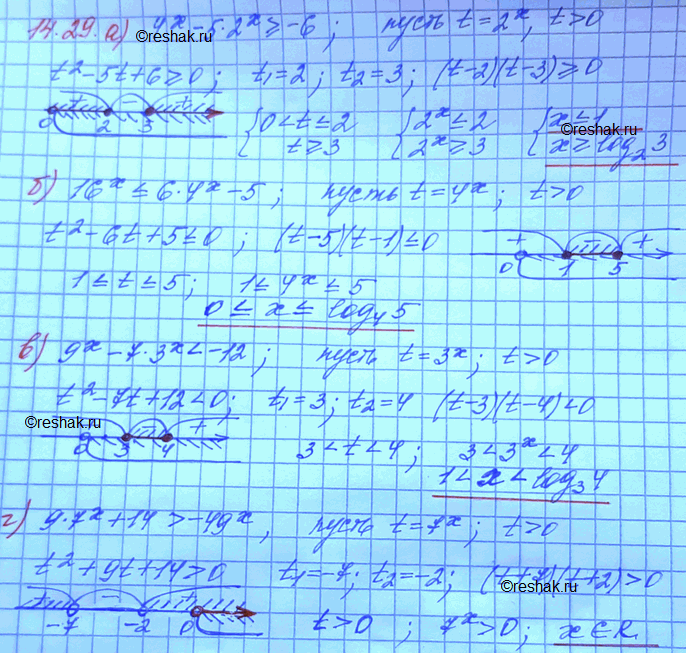 14.29. а) 4ˣ-5·2ˣ≥-6; пусть t=2ˣ, t>0
©reshak.ru
t²-5t+6≥0; t₁=2; t₂=3; (t-2)(t-3)≥0
+ - +
0 2 3
{0<t≤2 {2ˣ≤2 {x≤1
t≥3 2ˣ≥3 x≥log₂3
©reshak.ru
б) 16ˣ≤6·4ˣ-5; пусть t=4ˣ; t>0
t²-6t+5≤0; (t-5)(t-1)≤0
+ - +
0 1 5
1≤t≤5; 1≤4ˣ≤5
0≤x≤log₄5
в) 9ˣ-7·3ˣ<-12; пусть t=3ˣ; t>0
t²-7t+12<0; t₁=3; t₂=4 (t-3)(t-4)<0
©reshak.ru
- +
0 3 4
3<t<4; 3<3ˣ<4
1<x<log₃4
г) 9·7ˣ+14>-49ˣ, пусть t=7ˣ; t>0
t²+9t+14>0 t₁=-7; t₂=-2; (t+7)(t+2)>0
©reshak.ru
+ - +
-7 -2 0
t>0; 7ˣ>0; x∈R